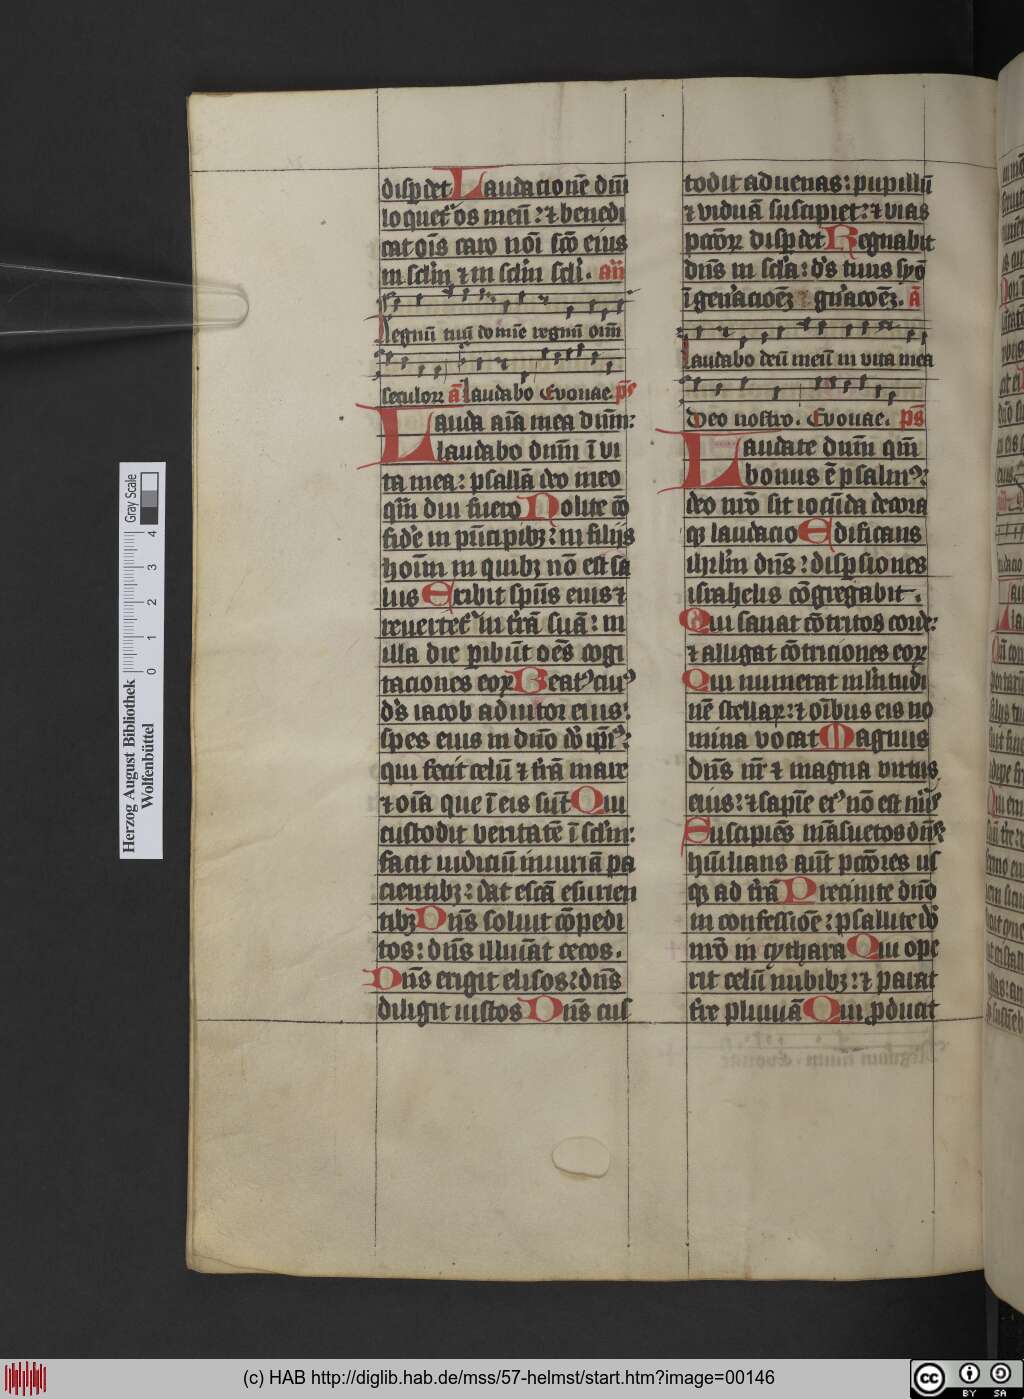 disp̱det Laudacionē dn̄i
loquet᷑ os meū : ⁊ benedi
cat om̄s caro nōi sc̄o eius
in sclm̄ ⁊ in sclm̄ scli. an̄
Regnū tuū domīe regnū oīm
seculoꝝ ā Laudabo Euouae. ps̄
Lauda aīa mea dn̄m:
laudabo dn̄m ī vi
ta mea: psallā deo meo
qm̄ diu fuero Nolite cō
fide in pn̄cipibꝫ: in filijs
hoīm in quibꝫ nō est sa
lus Exibit sp̄us eius ⁊
reuertet᷑ in tr̄ā suā: in
illa die ꝑibūt oēs cogi
taciones eoꝝ Beatꝰ cuiꝰ
dꝰs iacob adiutor eius:
spes eius in dn̄o dō ip̄iꝰ:
qui fecit celū ⁊ tr̄ā mare
⁊ oīa que ī eis sūt Qui
custodit veritatē ī sclm̄:
facit iudiciū iniuriā pa
cientibꝫ: dat escā esurien
tibꝫ Dn̄s soluit cōpedi
tos: dn̄s illuīat cecos.
Dn̄s erigit elisos: dn̄s
diligit iustos Dn̄s cus
todit aduenas: pupillū
⁊ viduā suscipiet: ⁊ vias
pccōꝝ disp̱det Regnabit
dn̄s in scl̄a: dꝰs tuus syō
ī gen̾acioēꝫ ⁊ gn̾acōēꝫ. ā
Laudabo deū meū in vita mea
Deo nostro. Euouae. ps̄
Laudate dn̄m qm̄
bonus ē psalmꝰ:
deo nr̄o sit iocūda decora
qꝫ laudacio Edificans
ihrlm̄ dn̄s: disp̱siones
israhelis cōgregabit.
Qui sanat cōtritos corde:
⁊ alligat cōtriciones eoꝝ
Qui numerat ml̄titudi
nē stellaꝝ: ⁊ oībus eis no
mina vocat Magnus
dn̄s nr̄ ⁊ magna virtus
eius: ⁊ sapīe eiꝰ nō est nūs
Suscipiēs māsuetos dn̄s:
hūilians aūt pccōres us
qꝫ ad tr̄ā Precinite dn̄o
in confessiōe: psallite dō
nr̄o in cythara Qui ope
rit celū nubibꝫ: ⁊ parat
tre pluuiā Qui ꝓducit
Herzog August Bibliothek
Wolfenbüttel
Gray Scale
0 1 2 3 4
(c) HAB http://diglib.hab.de/mss/57-helmst/start.htm?image=00146
cc BY SA